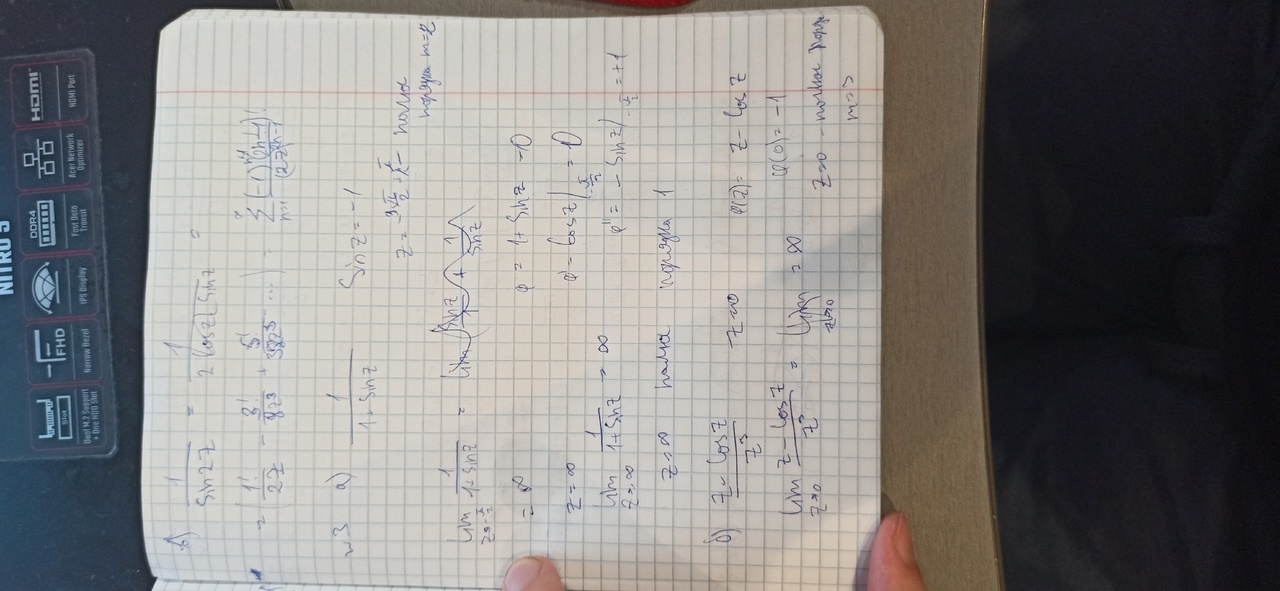 NITRO 5
Slot
FHD
DDR4
HDMI
Dual M.2 Support + One HDD Slot
Narrow Bezel
IPS Display
Fast Data Transit
Acer Network Optimizer
HDMI Port
в) 1/sin2z = 1/(2 cosz sinz) =
= (1!/2z - 3!/8z³ + 5!/32z⁵ - ...) = ∑ n=1 ∞ (-1)ⁿ⁺¹(2n-1)!/(2z)²ⁿ⁻¹
№3 а) 1/(1+sinz) sinz = -1
полюс
порядка m=2
lim z→-π/2 1/(1+sinz) = lim (sinz/1 + 1/sinz)
= ∞ φ = 1+sinz = 0
z=∞ φ' = cosz|-π/2 = 0
lim z→∞ 1/(1+sinz) = ∞ φ'' = -sinz|-π/2 = +1
z=∞ полюс порядка 1
б) (z-cosz)/z³ z=0 φ(z)= z-cosz
φ(0) = -1
lim z→0 (z-cosz)/z³ = lim z→0 = ∞
z=0 - полюс поряд
m=3